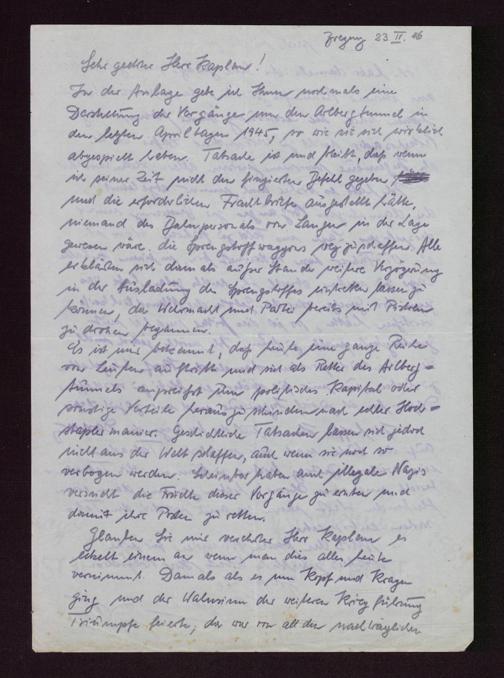 Bregenz 23 II. 46
Sehr geehrter Herr Kaplan!
In der Anlage gebe ich Ihnen nochmals eine
Darstellung der Vorgänge um den Arlbergtunnel in
den letzten Apriltagen 1945, so wie sie sich wirklich
abgespielt haben. Tatsache ist und bleibt, daß wenn
ich seiner Zeit nicht den fingierten Befehl gegeben
und die erforderlichen Frachtbriefe ausgestellt hätte,
niemand des Bahnpersonals von Langen in der Lage
gewesen wäre, die Sprengstoffwaggons wegzuschaffen. Alle
erklärten sich damals außer Stande weitere Verzögerung
in der Ausladung des Sprengstoffes eintreten lassen zu
können, da Wehrmacht und Partei bereits mit Pistolen
zu drohen begannen.
Es ist mir bekannt, daß heute eine ganze Reihe
von Leuten auftritt und sich als Retter des Arlberg-
tunnels anpreist um politisches Kapital oder
sonstige Vorteile herauszuschinden nach edler Hoch-
staplermanier. Geschichtliche Tatsachen lassen sich jedoch
nicht aus der Welt schaffen, auch wenn sie noch so
verbogen werden. Scheinbar haben auch illegale Nazis
versucht die Früchte dieser Vorgänge zu ernten und
damit ihre Posten zu retten.
Glauben Sie mir verehrter Herr Kaplan, es
ekelt einem an wenn man dies alles heute
vernimmt. Damals als es um Kopf und Kragen
ging und der Wahnsinn der weiteren Kriegführung
Triumpfe feierte, da war von all den nachträglichen